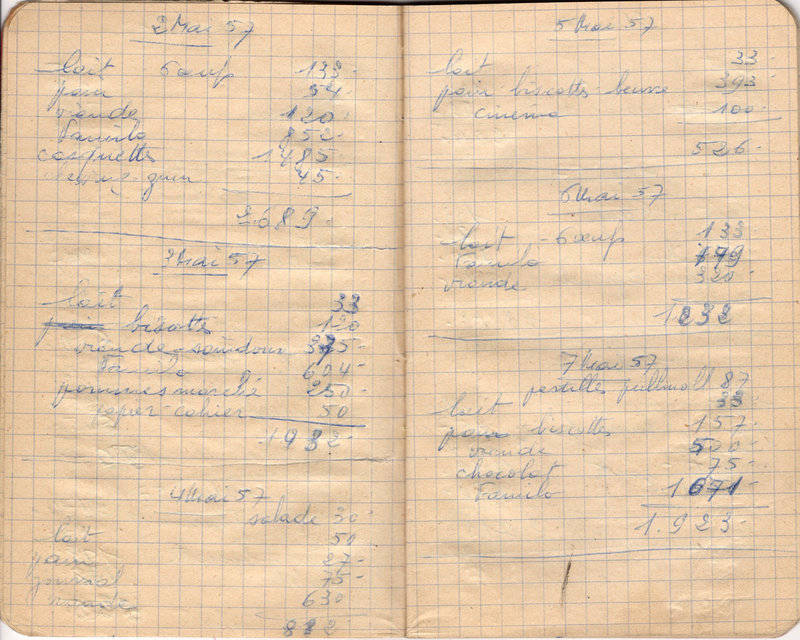 2 Mai 57
lait 6 œufs 133-
pain 54-
viande 120-
Familo 852-
casquettes 1485-
gum 45-
2689-
3 Mai 57
lait 33
biscottes 120
viande-saindoux 375-
Familo 604-
pommes marché 250-
papier-cahier 50
1982-
4 Mai 57
salade 30-
lait 50
pain 27-
journal 75-
viande 630
812
5 Mai 57
lait 33-
pain biscottes beurre 393-
cinéma 100-
526-
6 Mai 57
lait - 6 œufs 133
Familo
viande 320-
1232
7 Mai 57
pastilles pullmoll 87
lait 33-
pain biscottes 157-
viande 500-
chocolat 75-
Familo 1071-
1.923-